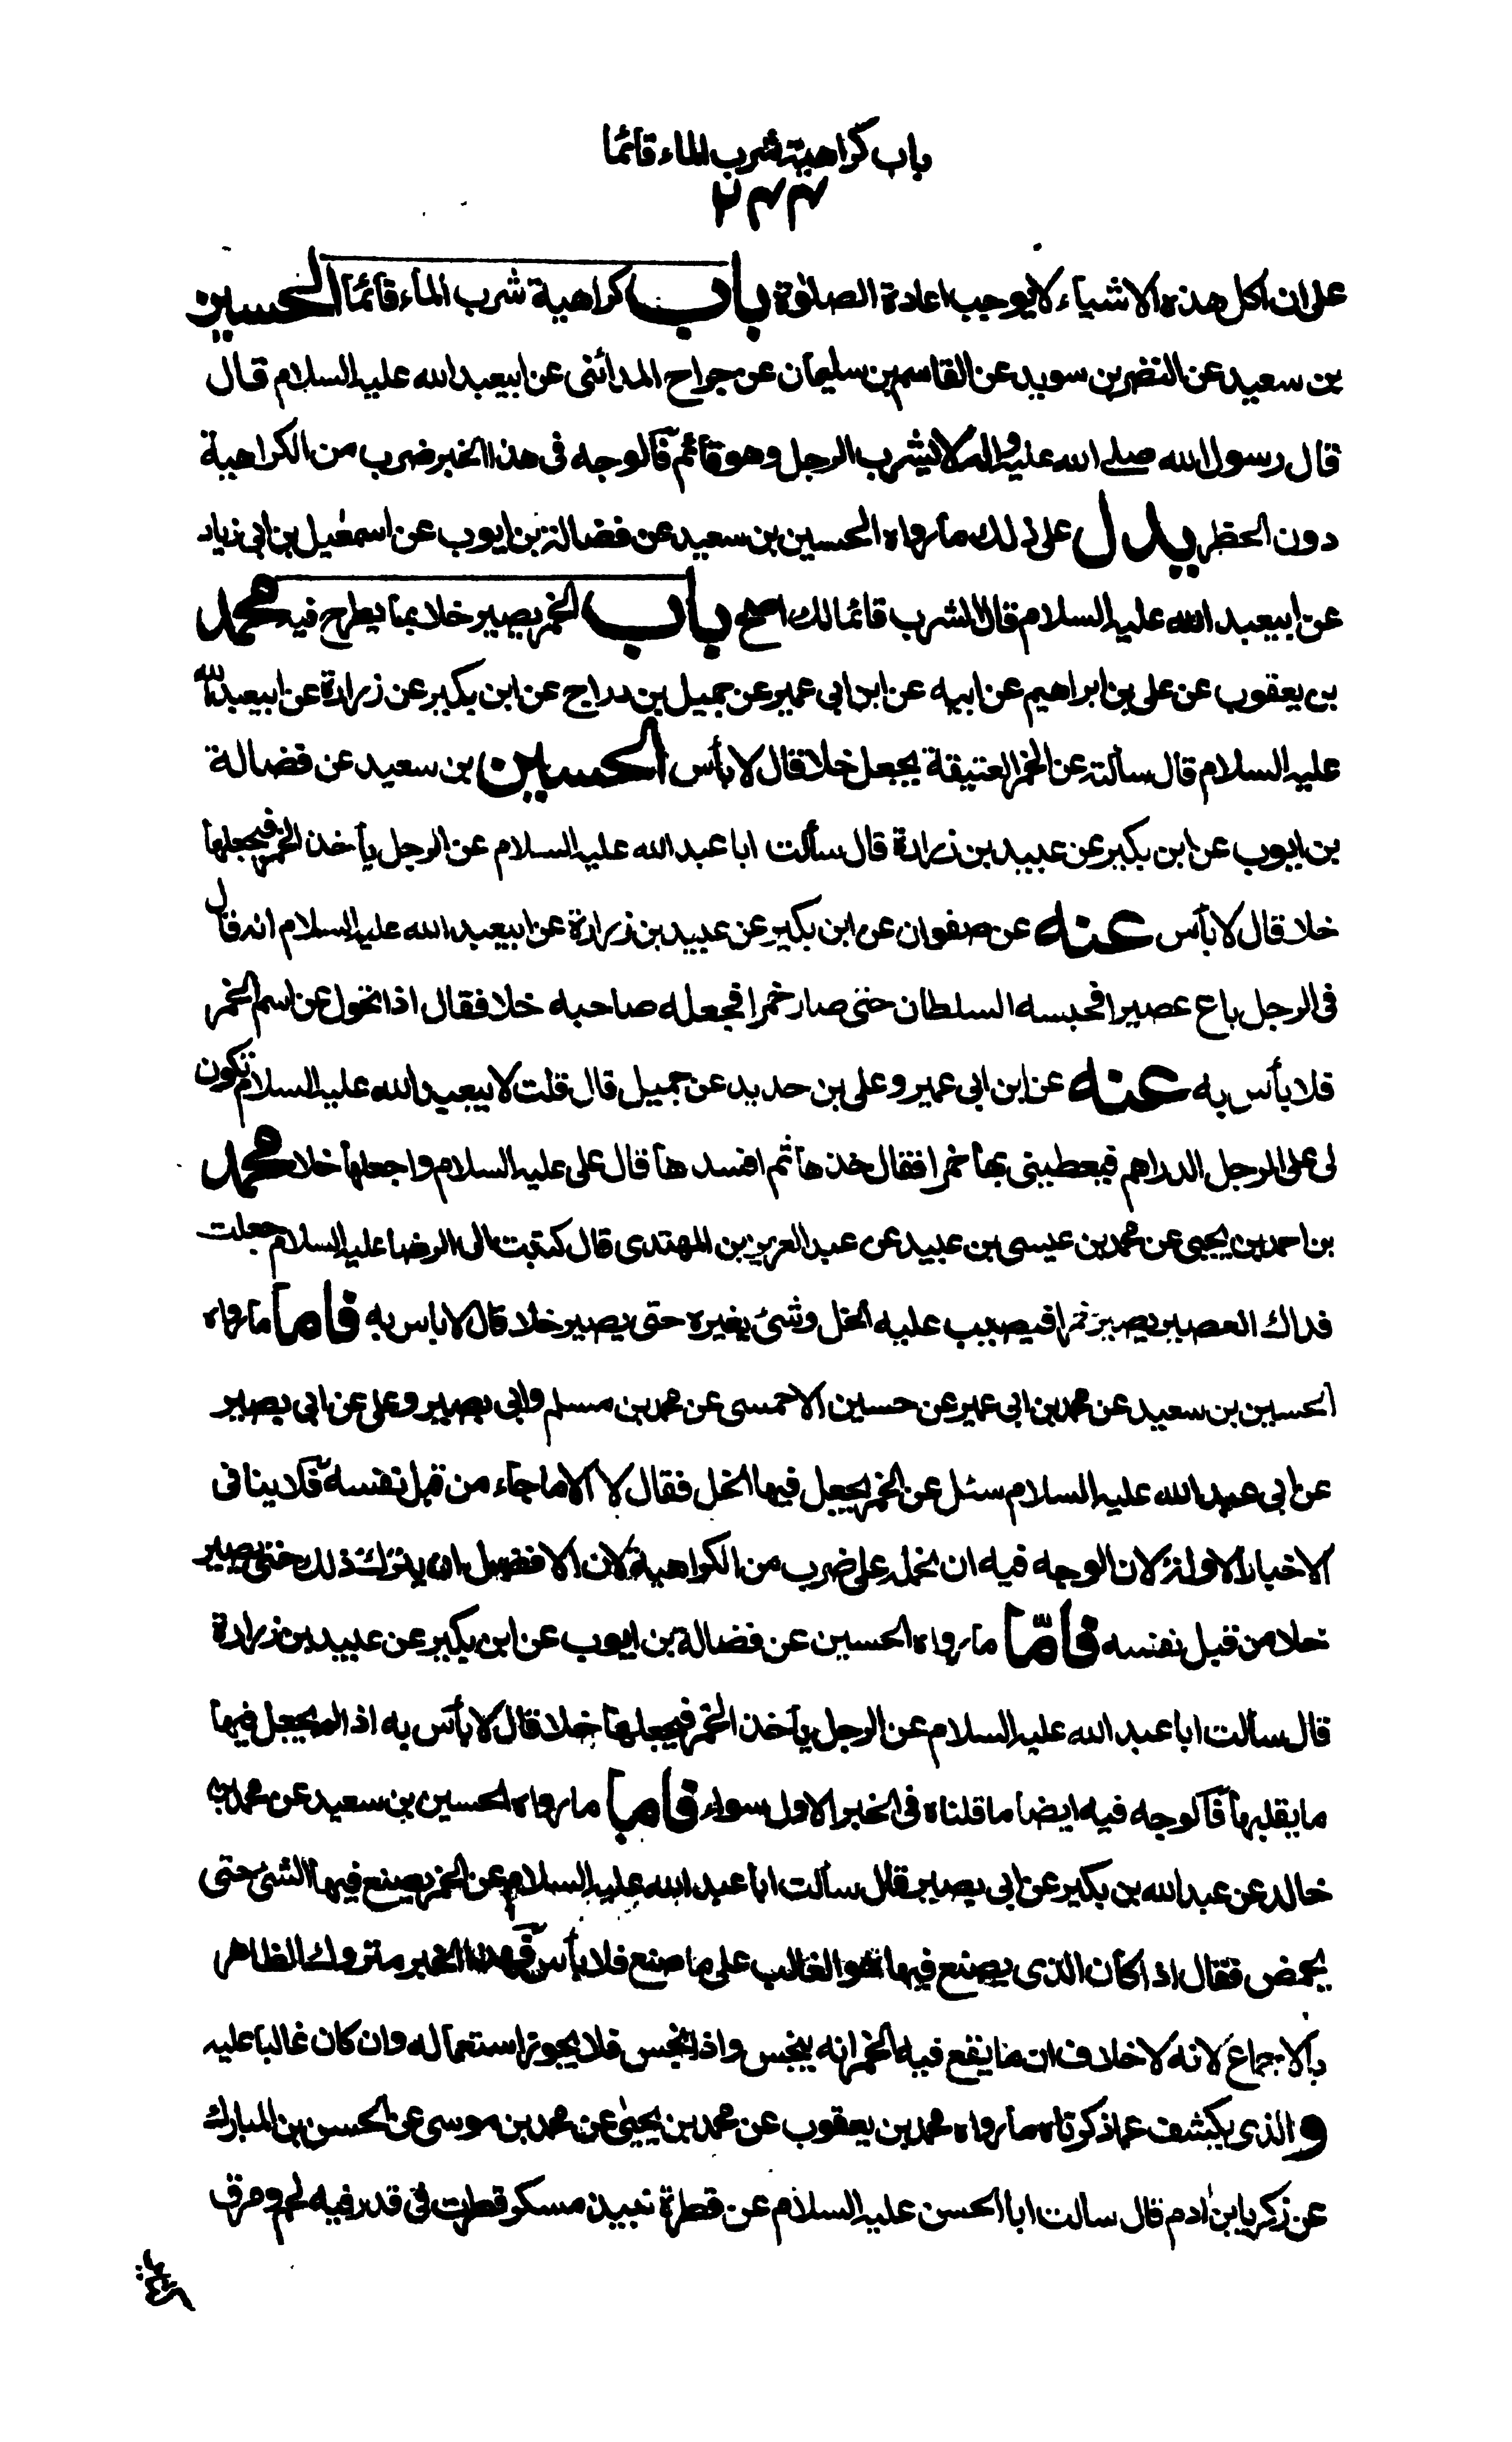 باب كراهية شرب الماء قائما
٢٣٣
على ان اكل هذه الاشياء لا يوجب اعادة الصلوة باب كراهية شرب الماء قائما الحسين
بن سعيد عن النضر بن سويد عن القاسم بن سليمان عن جراح المدائنى عن ابيعبد الله عليه السلام قال
قال رسول الله صلى الله عليه واله لا يشرب الرجل وهو قائم فالوجه فى هذا الخبر ضرب من الكراهية
دون الحظر يدل على ذلك ما رواه الحسين بن سعيد عن فضالة بن ايوب عن اسمعيل بن ابى زياد
عن ابيعبد الله عليه السلام قال الشرب قائما لك اصح باب الخمر يصير خلا بما يطرح فيه محمد
بن يعقوب عن على بن ابراهيم عن ابيه عن ابن ابى عمير عن جميل بن دراج عن ابن بكير عن زرارة عن ابيعبد الله
عليه السلام قال سألته عن الخمر العتيقة يجعل خلا قال لا بأس الحسين بن سعيد عن فضالة
بن ايوب عن ابن بكير عن عبيد بن زرارة قال سألت ابا عبد الله عليه السلام عن الرجل يأخذ الخمر فيجعلها
خلا قال لا بأس عنه عن صفوان عن ابن بكير عن عبيد بن زرارة عن ابيعبد الله عليه السلام انه قال
فى الرجل باع عصيرا فحبسه السلطان حتى صار خمرا فجعله صاحبه خلا فقال اذا تحول عن اسم الخمر
فلا بأس به عنه عن ابن ابى عمير وعلى بن حديد عن جميل قال قلت لابيعبد الله عليه السلام تكون
لى على الرجل الدراهم فيعطينى بها خمرا فقال خذها ثم افسدها قال على عليه السلام واجعلها خلا محمد
بن احمد بن يحيى عن محمد بن عيسى بن عبيد عن عبد العزيز بن المهتدى قال كتبت الى الرضا عليه السلام جعلت
فداك العصير يصير خمرا فيصب عليه الخل وشئ يغيره حتى يصير خلا قال لا باس به فاما ما رواه
الحسين بن سعيد عن محمد بن ابى عمير عن حسين الاحمسى عن محمد بن مسلم وابى بصير وعلى عن ابى بصير
عن ابى عبد الله عليه السلام سئل عن الخمر يجعل فيها الخل فقال لا الا ما جاء من قبل نفسه فلا ينافى
الاخبار الاولة لان الوجه فيه ان نحمله على ضرب من الكراهية لان الافضل ان يترك ذلك حتى يصير
خلا من قبل نفسه فامّا ما رواه الحسين عن فضالة بن ايوب عن ابن بكير عن عبيد بن زرارة
قال سألت ابا عبد الله عليه السلام عن الرجل يأخذ الخمر فيجعلها خلا قال لا بأس به اذا لم يجعل فيها
ما يقلبها فالوجه فيه ايضا ما قلناه فى الخبر الاول سواء فاما ما رواه الحسين بن سعيد عن محمد بن
خالد عن عبد الله بن بكير عن ابى بصير قال سألت ابا عبد الله عليه السلام عن الخمر يصنع فيها الشئ حتى
يحمض فقال اذا كان الذى يصنع فيها هو الغالب على ما صنع فلا بأس فهذا الخبر متروك الظاهر
بالاجماع لانه لا خلاف ان ما يقع فيه الخمر انه ينجس واذا نجس فلا يجوز استعماله وان كان غالبا عليه
و الذى يكشف عما ذكرناه ما رواه محمد بن يعقوب عن محمد بن يحيى عن محمد بن موسى عن الحسن بن المبارك
عن زكريا بن ادم قال سالت ابا الحسن عليه السلام عن قطرة نبيذ مسكر قطرت فى قدر فيه لحم ومرق